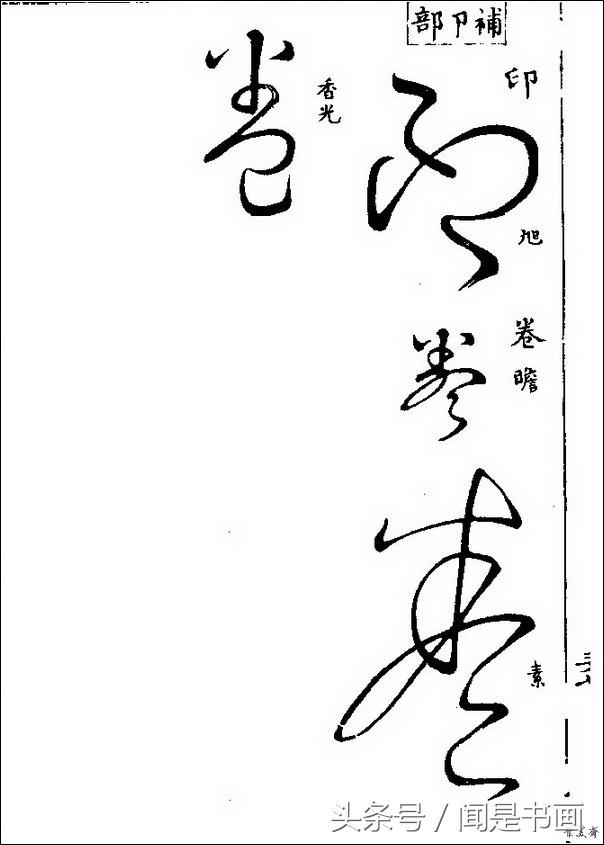 補卩部
印
印
旭
卷
瞻
卷
卷
素
香光
卷
头条号 / 闻是书画